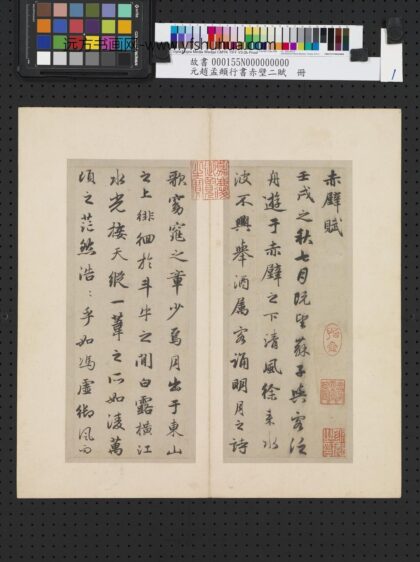 远方书画网-www.yfshuhua.com
故書 000155N000000000
元趙孟頫行書赤壁二賦 冊
1
赤壁賦
壬戌之秋七月既望蘇子與客泛
舟遊于赤壁之下清風徐來水
波不興舉酒屬客誦明月之詩
歌窈窕之章少焉月出于東山
之上徘徊於斗牛之間白露橫江
水光接天縱一葦之所如淩萬
頃之茫然浩〻乎如馮虛御風而